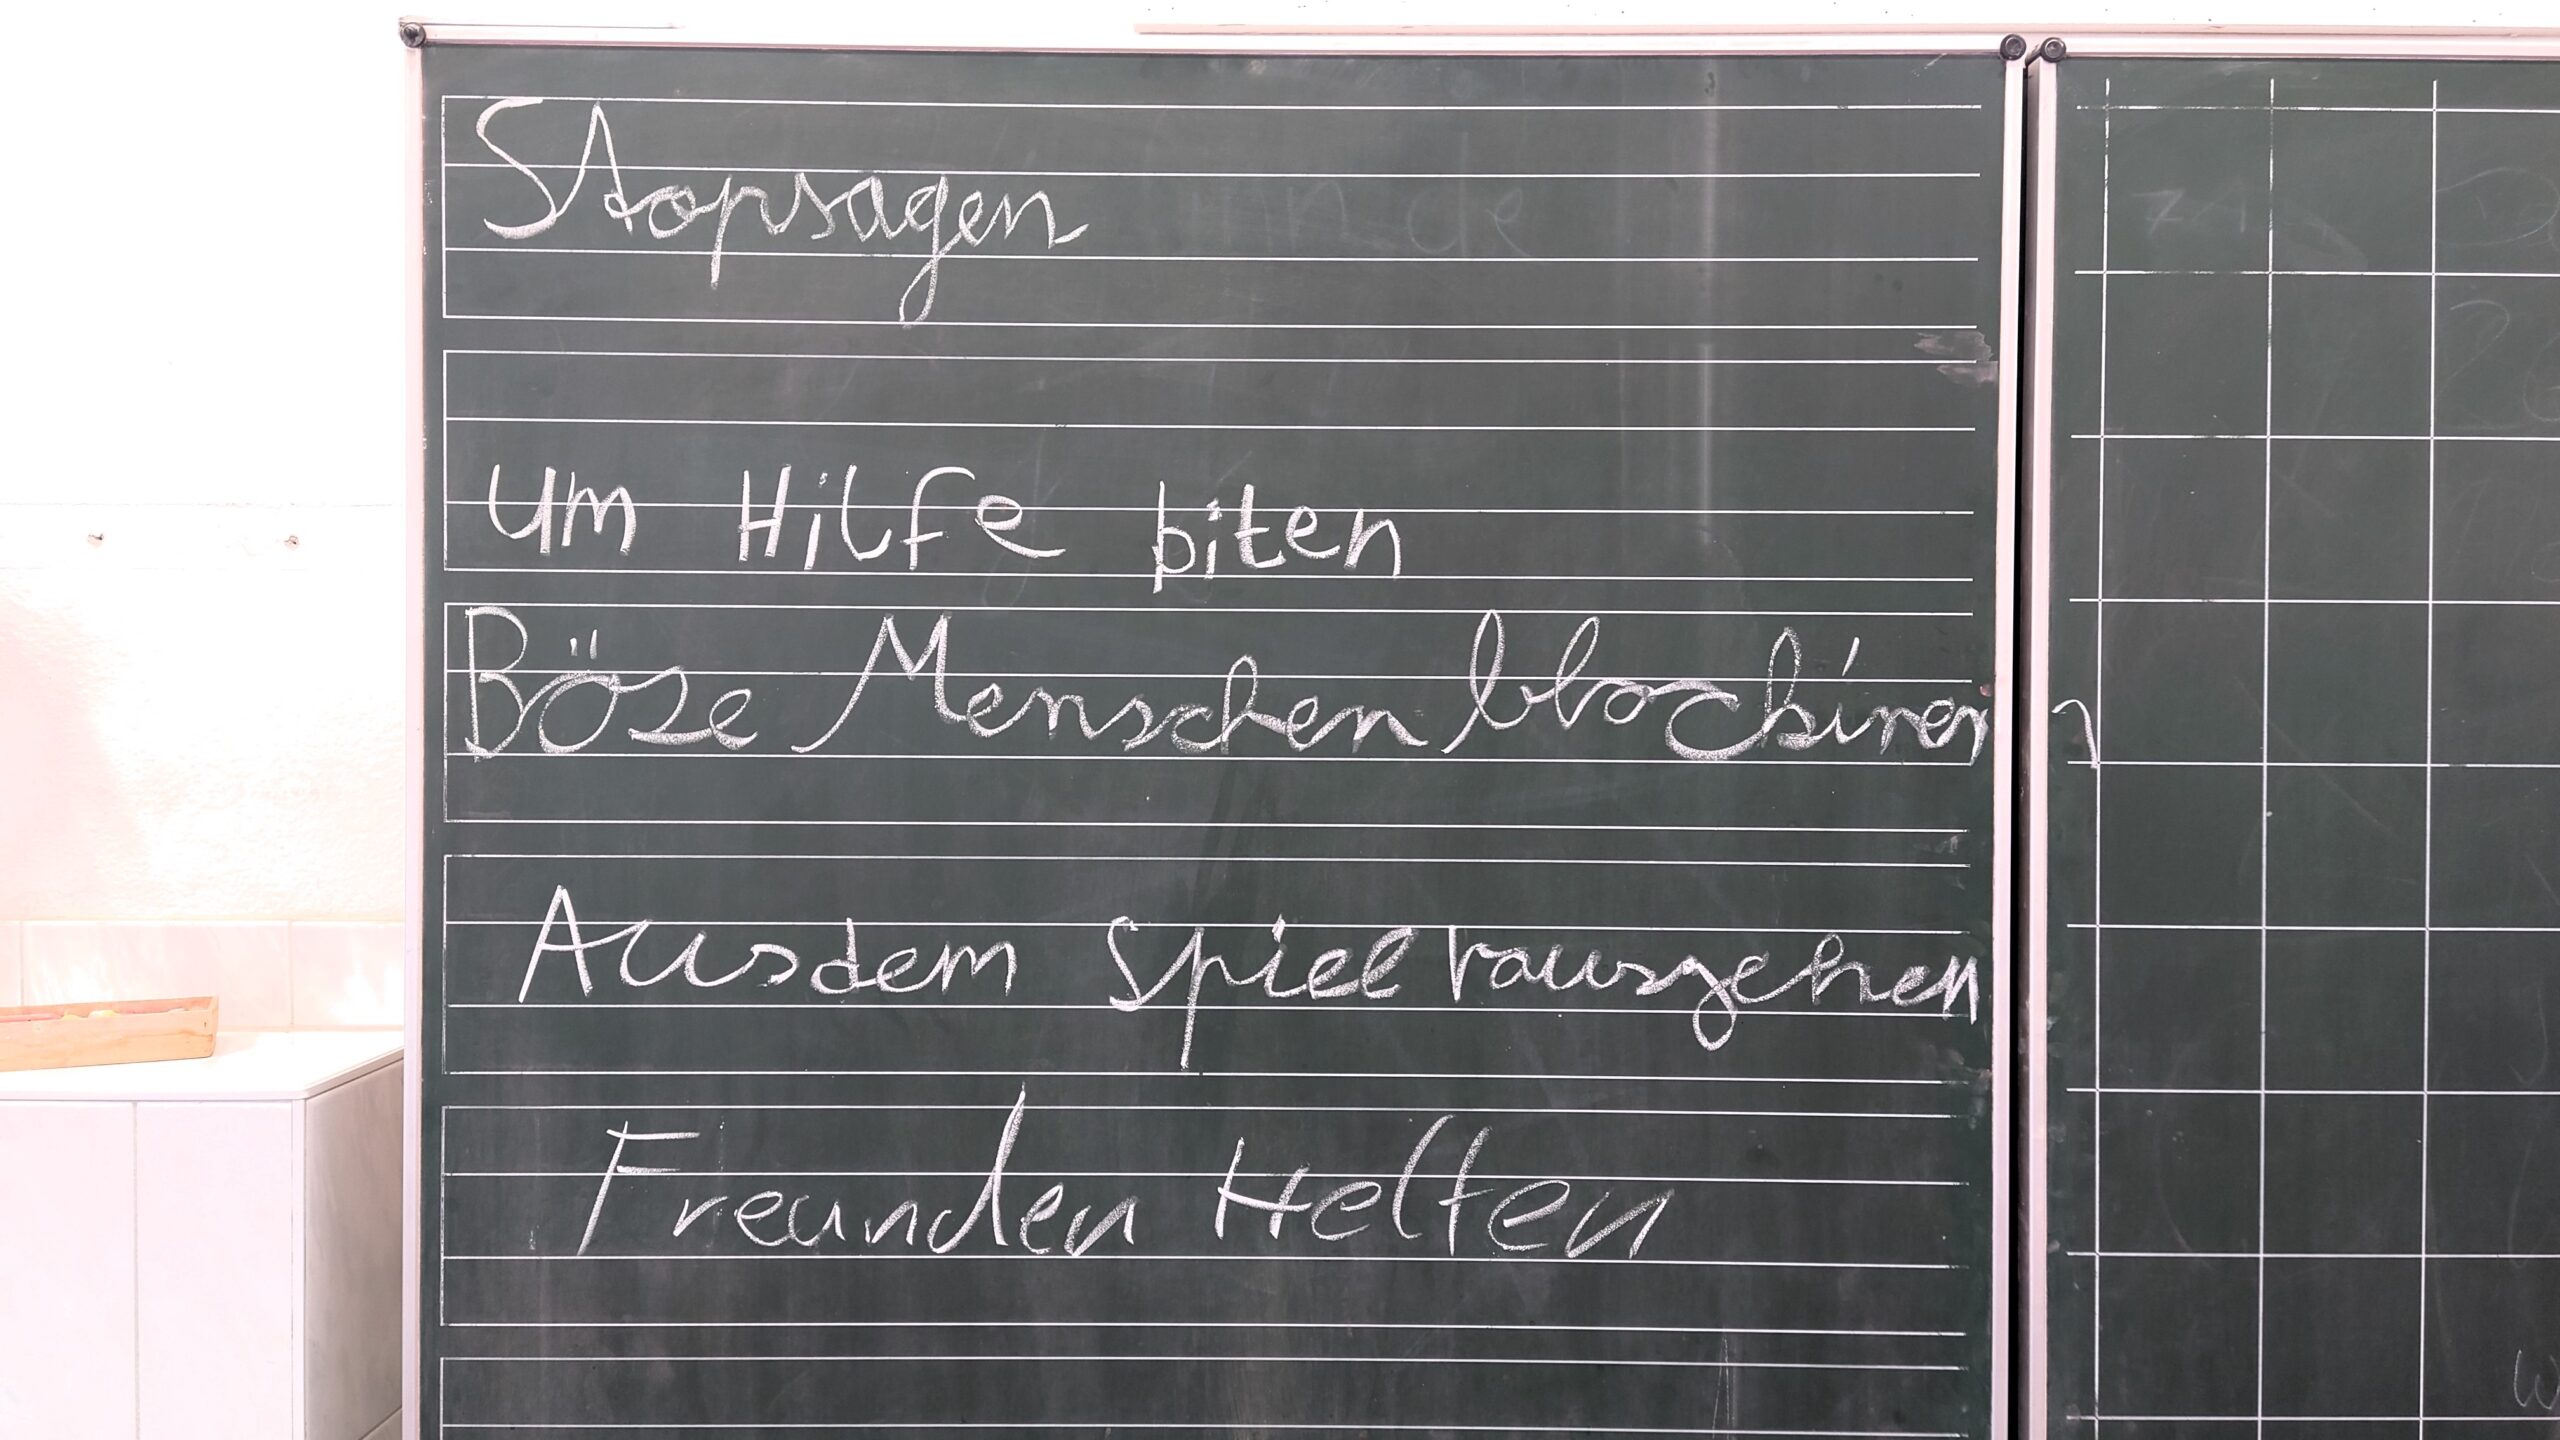 Stopsagen
um Hilfe biten
Böse Menschen blockiren
Ausdem Spiel rausgehen
Freunden Helfen